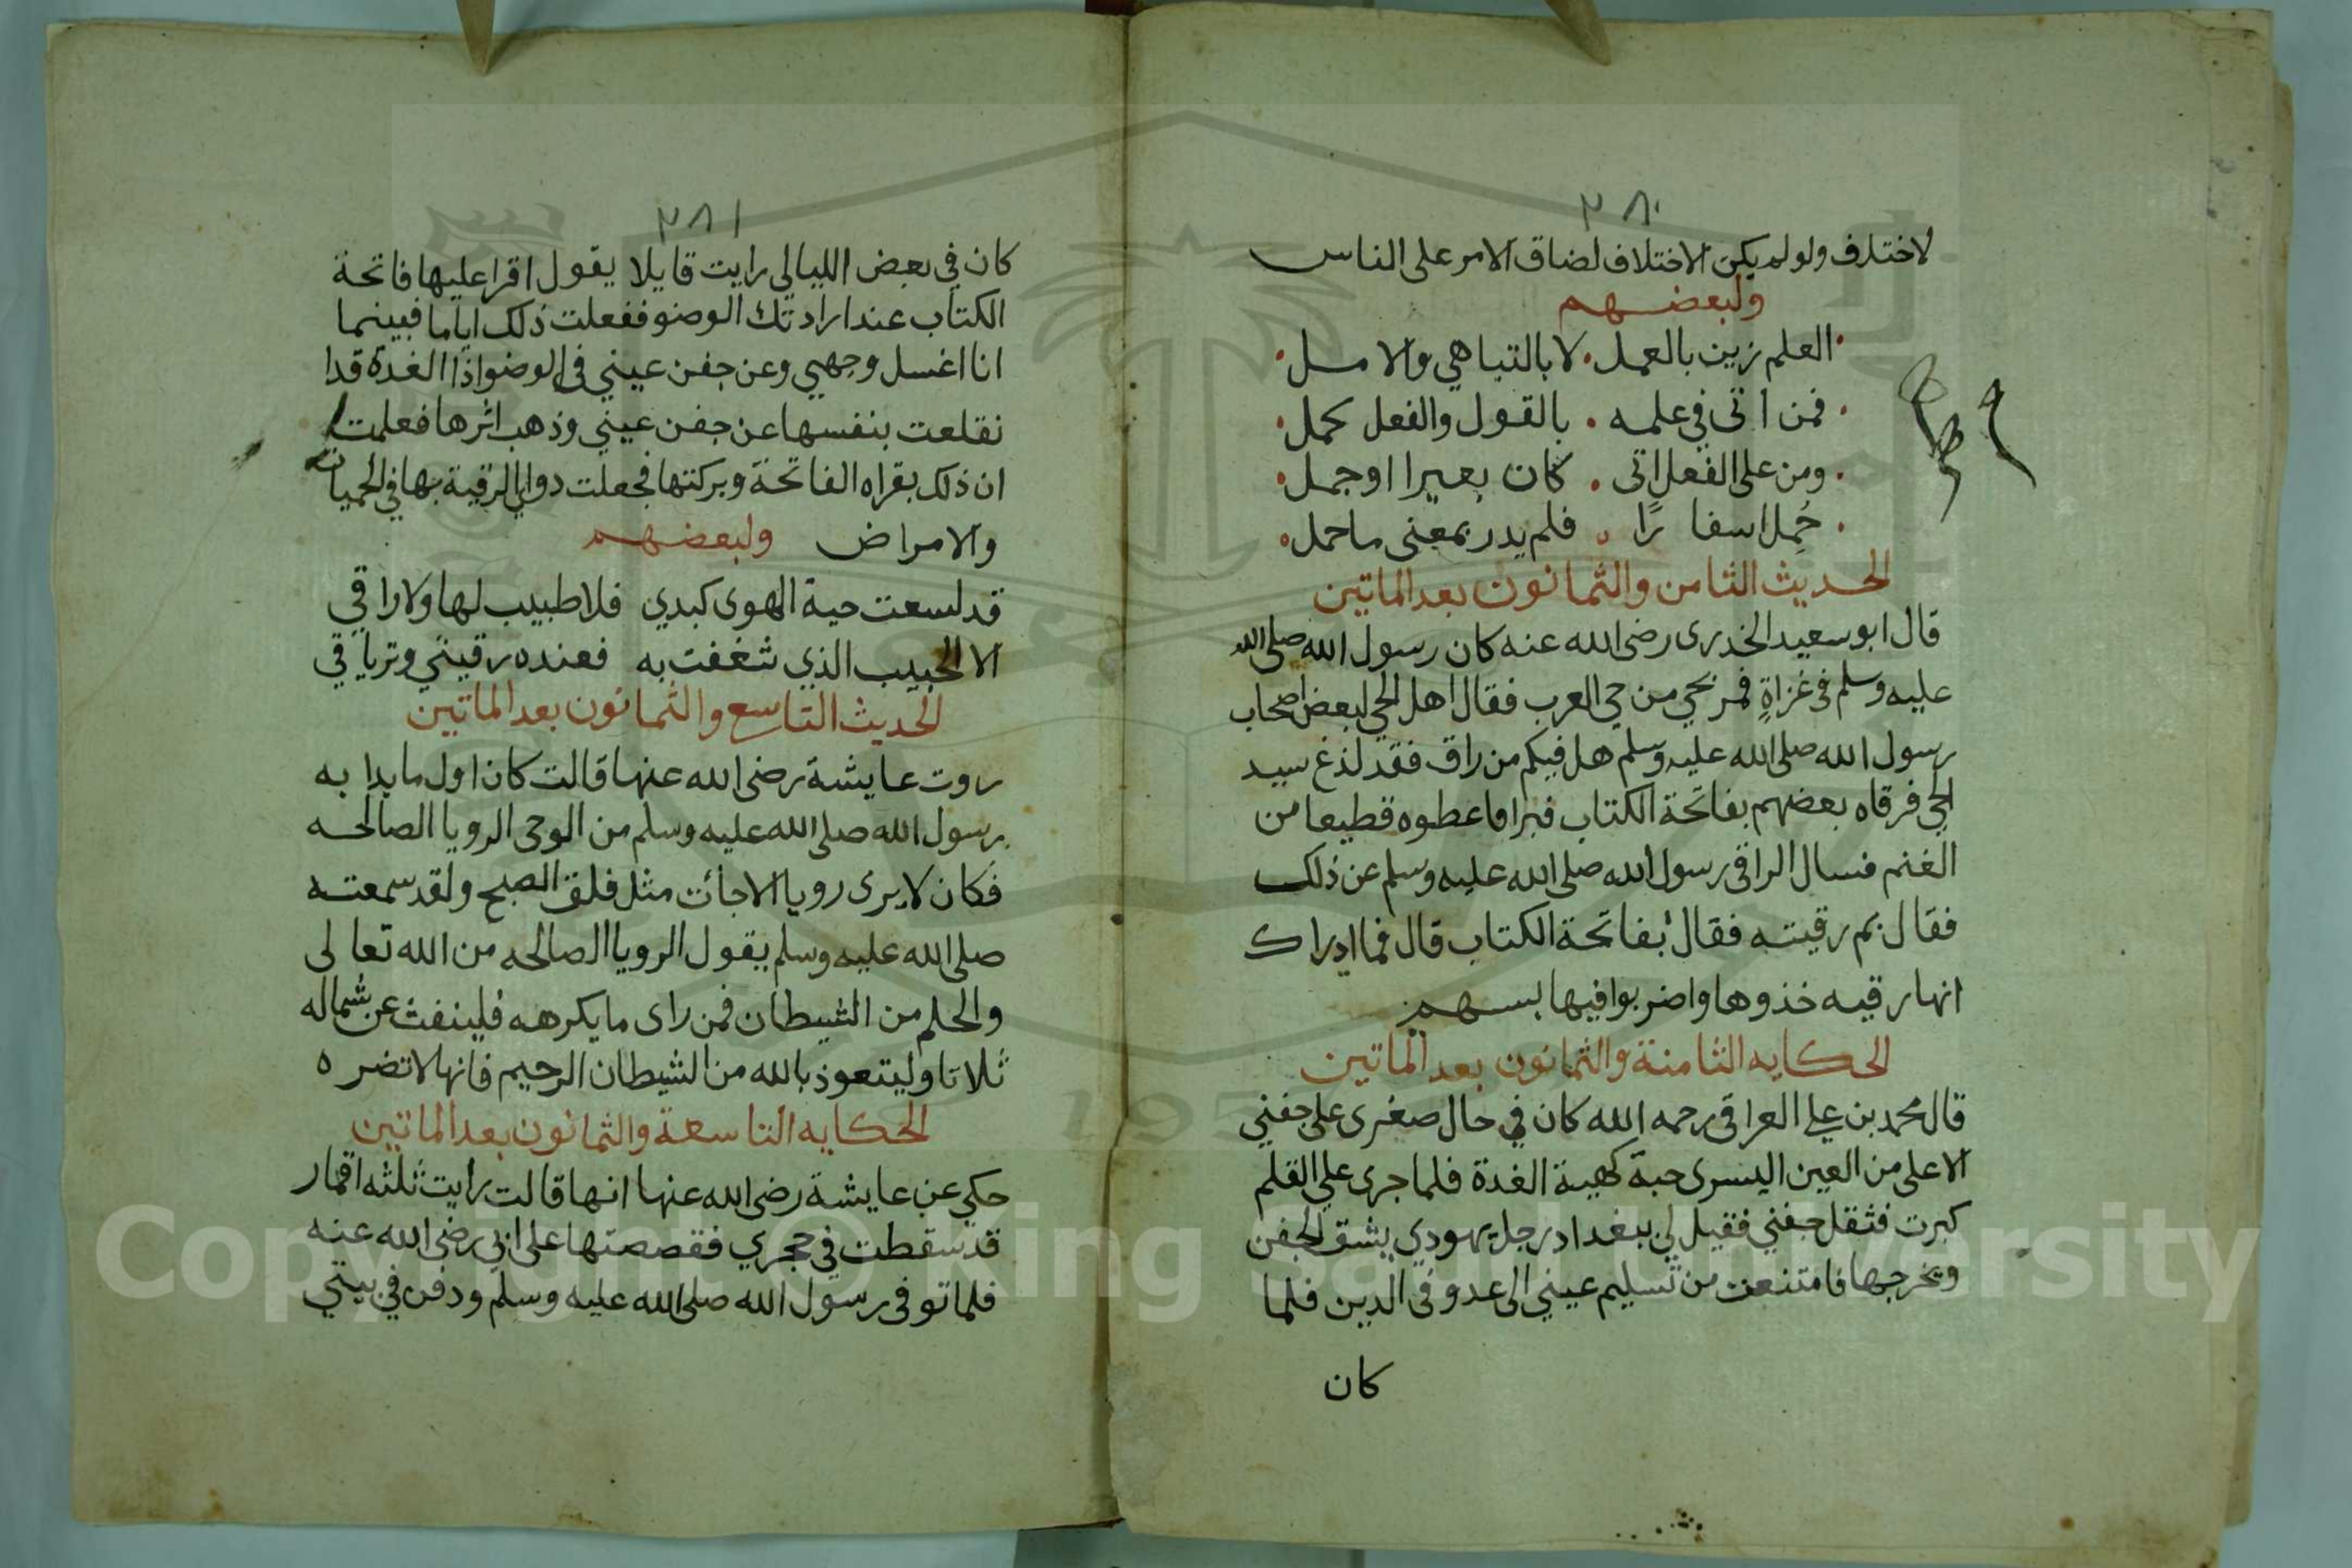 ٢٨٠
لاختلاف ولو لم يكن الاختلاف لضاق الامر على الناس
ولبعضهم
العلم زين بالعمل . لا بالتباهي والامل
فمن اتى في علمه . بالقول والفعل كمل
ومن على الفعل اتى . كان بعيرا او جمل
حُمِل اسفا رًا . فلم يدر بمعنى ما حمل
الحديث الثامن والثمانون بعد الماتين
قال ابو سعيد الخدرى رضى الله عنه كان رسول الله صلى الله
عليه وسلم فى غزاةٍ فمر بحي من حي العرب فقال اهل الحي لبعض اصحاب
رسول الله صلى الله عليه وسلم هل فيكم من راق فقد لذغ سيد
الحي فرقاه بعضهم بفاتحة الكتاب فبرا فاعطوه قطيعا من
الغنم فسال الراقى رسول الله صلى الله عليه وسلم عن ذلك
فقال بم رقيته فقال بفاتحة الكتاب قال فما ادراك
انها رقيه خذوها واضربوا فيها بسهم
الحكايه الثامنة والثمانون بعد الماتين
قال محمد بن علي العراقى رحمه الله كان في حال صغرى على جفني
الاعلى من العين اليسرى حبة كهية الغدة فلما جرى علي القلم
كبرت فثقل جفني فقيل لي ببغداد رجل يهودي يشق الجفن
ويخرجها فامتنعت من تسليم عيني الى عدو فى الدين فلما
كان
٢٨١
كان في بعض الليالي رايت قايلا يقول اقرا عليها فاتحة
الكتاب عند ارادتك الوضو ففعلت ذلك اياما فبينما
انا اغسل وجهي وعن جفن عيني فى الوضو اذا الغدة قد ا
نقلعت بنفسها عن جفن عيني وذهب اثرها فعلمت
ان ذلك بقراه الفاتحة وبركتها فجعلت دوايا الرقية بها في الحميات
والامراض ولبعضهم
قد لسعت حية الهوى كبدي فلا طبيب لها ولا راقي
الا الحبيب الذي شغفت به فعنده رقيتي وترياقي
الحديث التاسع والثمانون بعد الماتين
روت عايشة رضى الله عنها قالت كان اول ما بدا به
رسول الله صلى الله عليه وسلم من الوحى الرويا الصالحه
فكان لا يرى رويا الا جأت مثل فلق الصبح ولقد سمعته
صلى الله عليه وسلم يقول الرويا الصالحه من الله تعالى
والحلم من الشيطان فمن راى ما يكرهه فلينفث عن شماله
ثلاثا وليتعوذ بالله من الشيطان الرجيم فانها لا تضره
الحكايه التاسعة والثمانون بعد الماتين
حكي عن عايشة رضى الله عنها انها قالت رايت ثلثه اقمار
قد سقطت في حجري فقصصتها على ابي رضى الله عنه
فلما توفى رسول الله صلى الله عليه وسلم ودفن في بيتي
Copyright © King Saud University
195